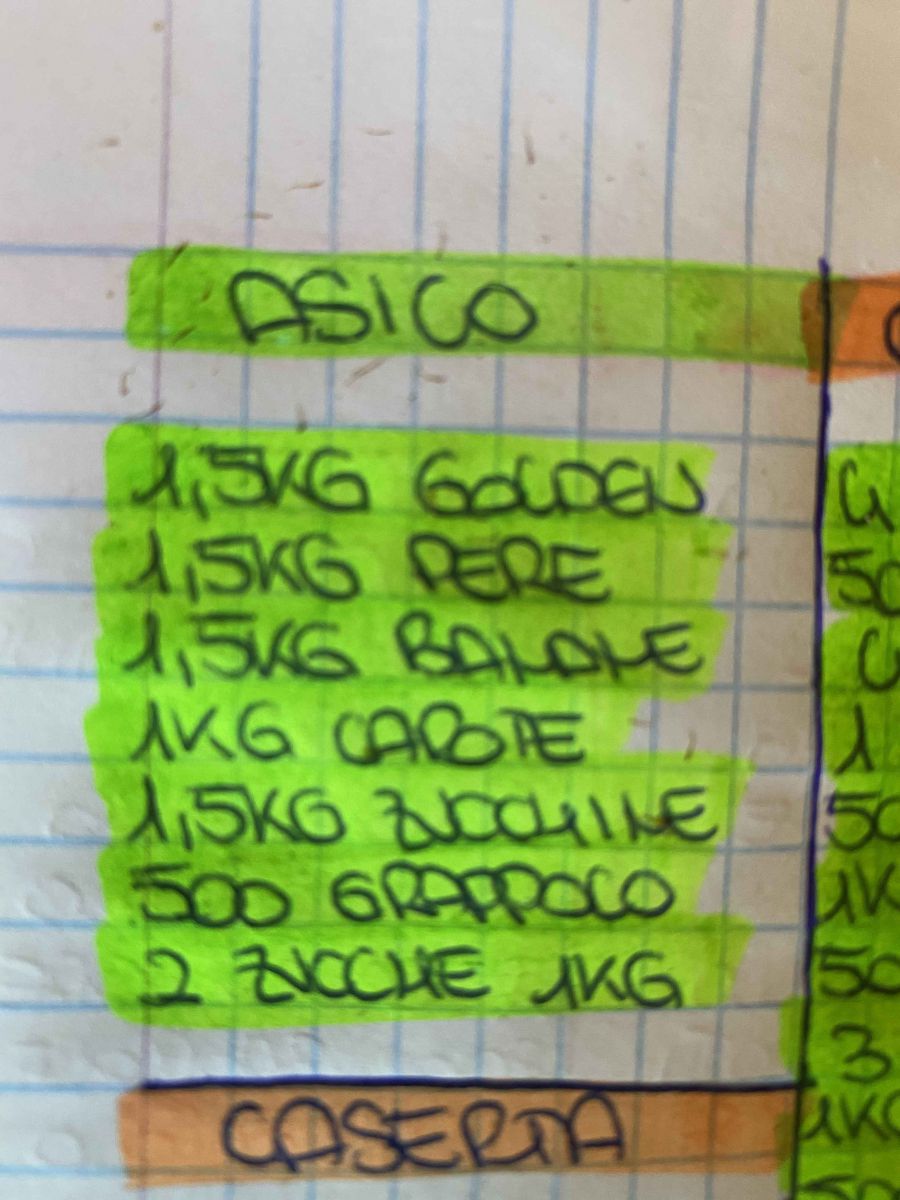 ASILO
1,5KG GOLDEN
1,5KG PERE
1,5KG BANANE
1KG CAROTE
1,5KG ZUCCHINE
500 GRAPPOLO
2 ZUCCHE 1KG
CASERTA
50
1
50
1K
50
3
1KG
50